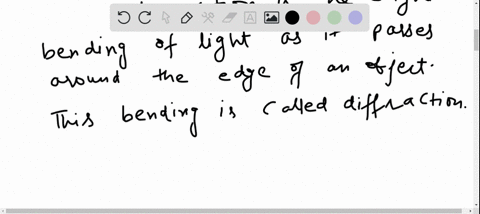 bending of light as it passes
around the edge of an object.
This bending is called diffraction.